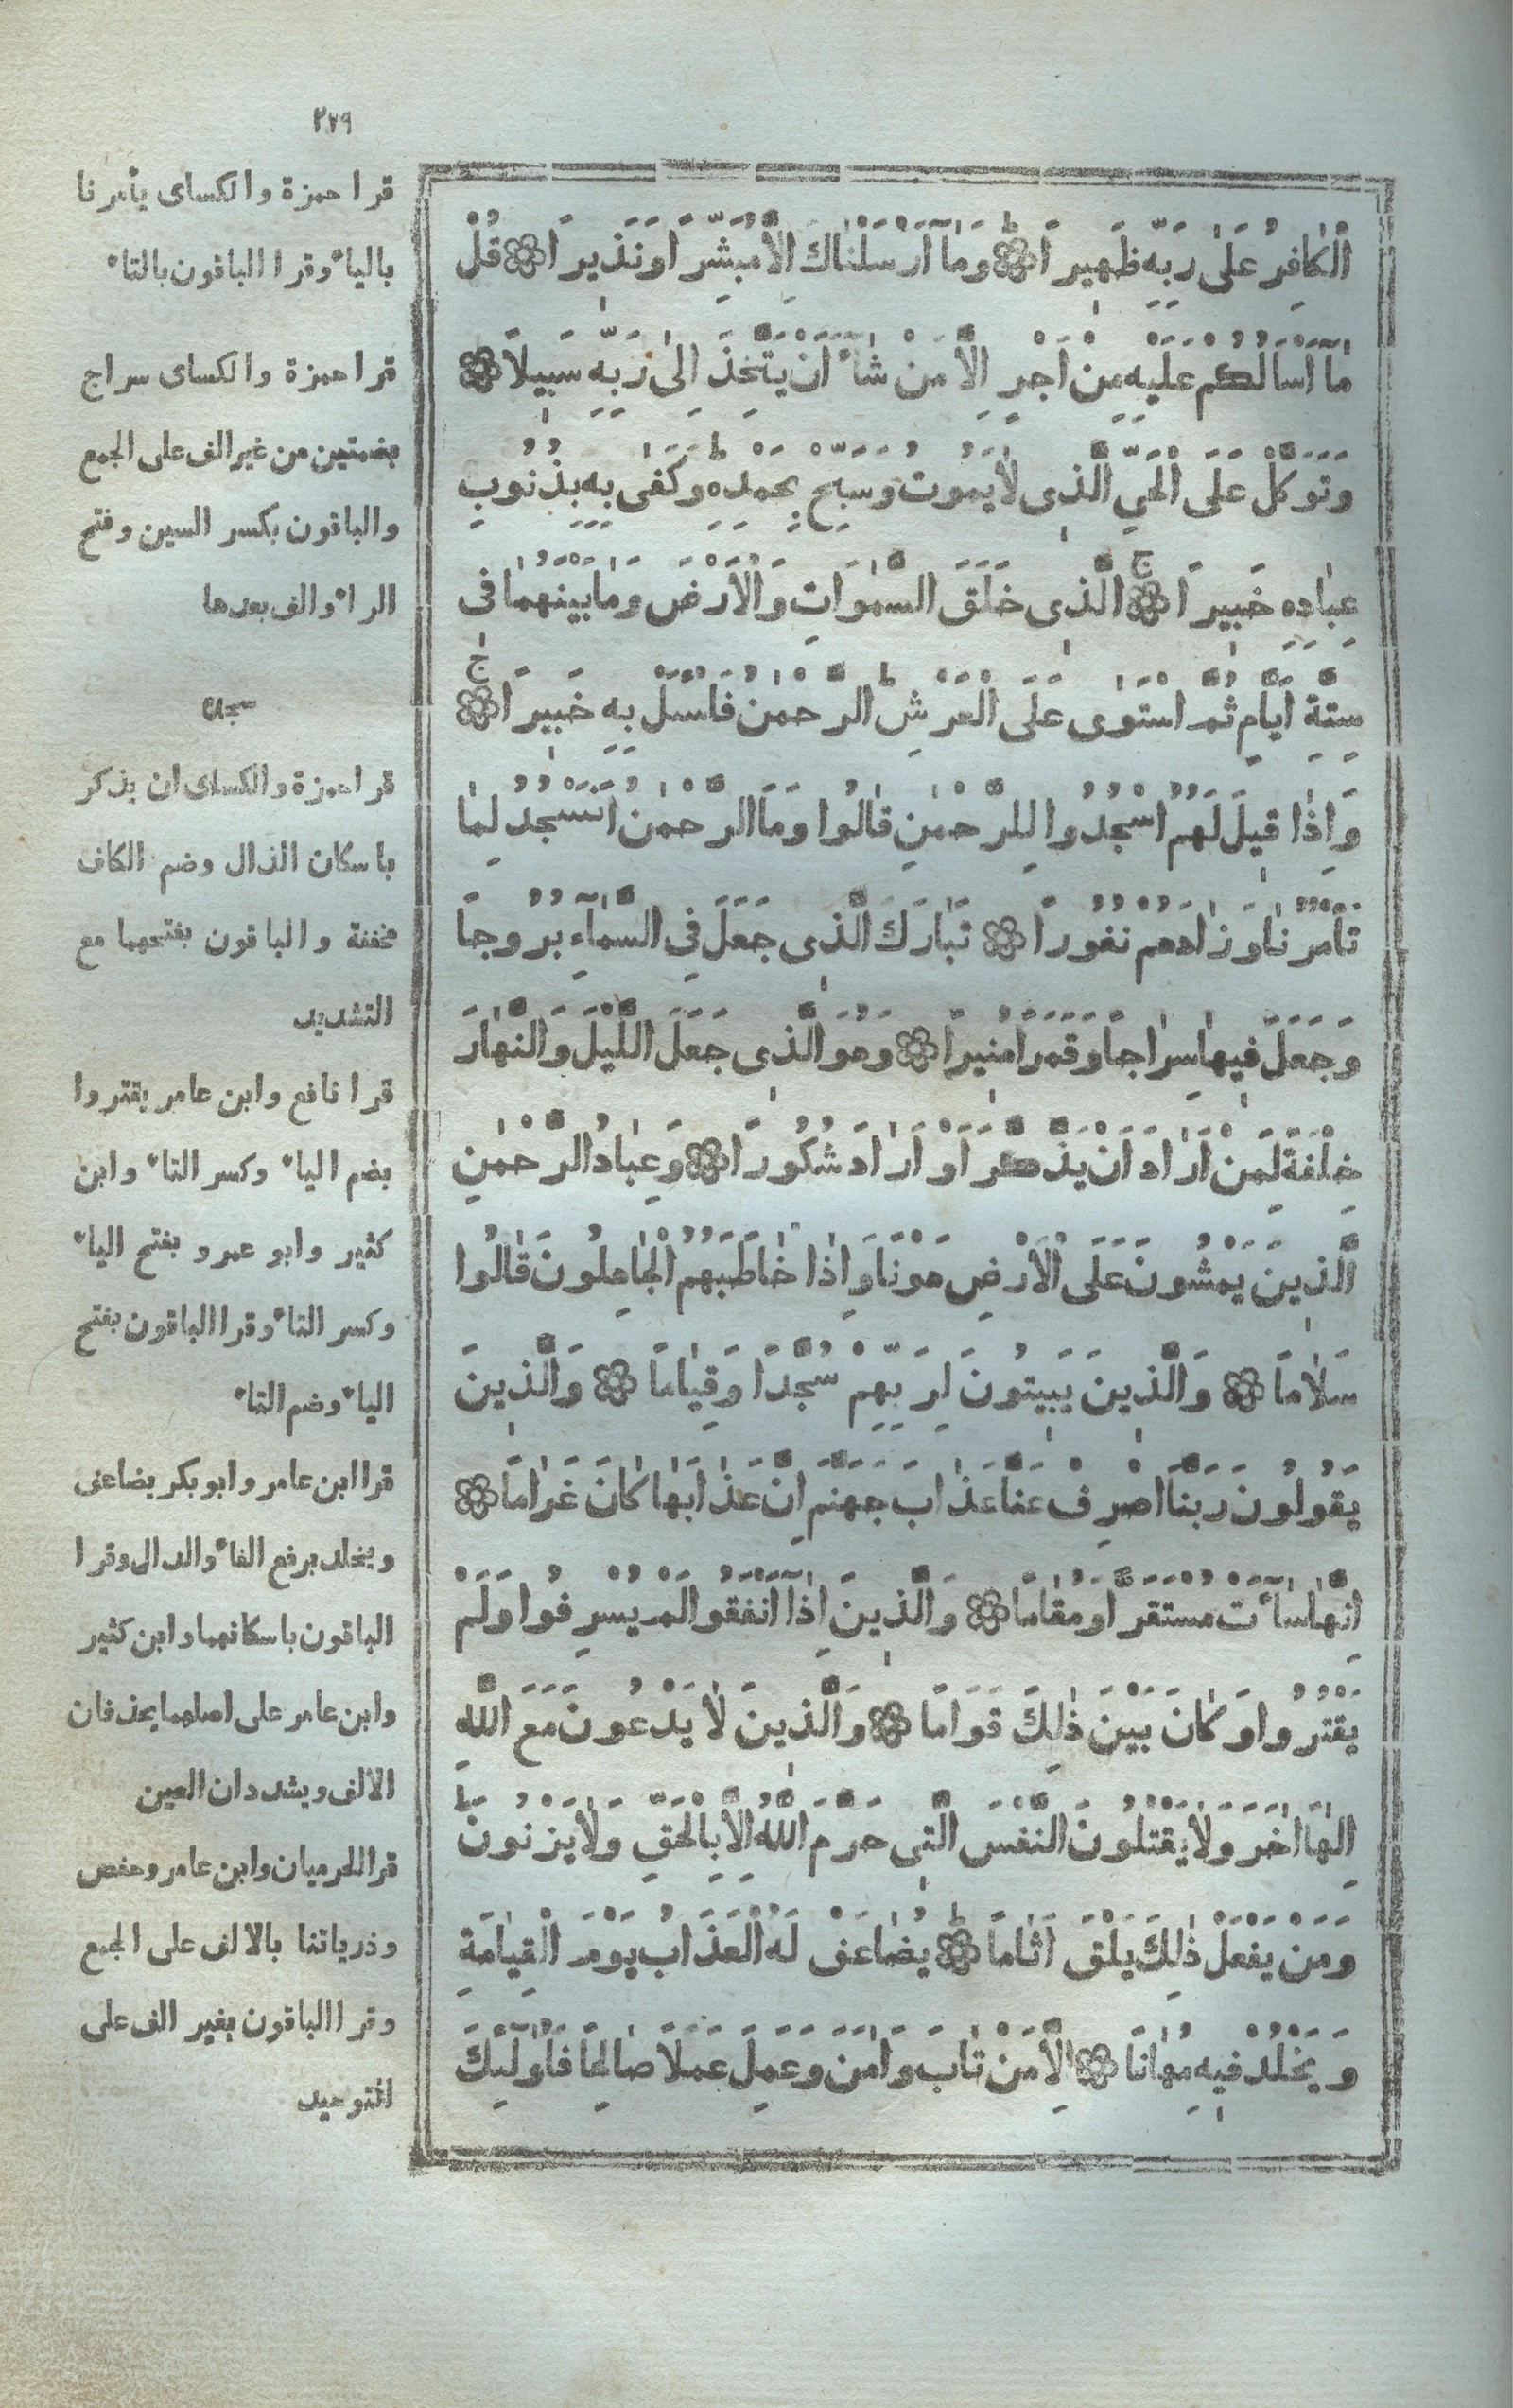 ٢٧٩
اَلْكٰافِرُ عَلٰى رَبِّهِ ظَهِيرًا ۞ وَمٰٓا اَرْسَلْنٰاكَ اِلَّا مُبَشِّرًا وَنَذِيرًا ۞ قُلْ
مٰٓا اَسْاَلُكُمْ عَلَيْهِ مِنْ اَجْرٍ اِلَّا مَنْ شٰٓاءَ اَنْ يَتَّخِذَ اِلٰى رَبِّهِ سَبِيلًا ۞
وَتَوَكَّلْ عَلَى الْحَيِّ الَّذِى لٰا يَمُوتُ وَسَبِّحْ بِحَمْدِهِ ط وَكَفٰى بِهِ بِذُنُوبِ
عِبٰادِهِ خَبِيرًا ۞ ج الَّذِى خَلَقَ السَّمٰوَاتِ وَالْاَرْضَ وَمٰا بَيْنَهُمٰا فِى
سِتَّةِ اَيَّامٍ ثُمَّ اسْتَوٰى عَلَى الْعَرْشِ ط الرَّحْمٰنُ فَاسْئَلْ بِهِ خَبِيرًا ۞ ج
وَاِذٰا قِيلَ لَهُمُ اسْجُدُوا لِلرَّحْمٰنِ قٰالُوا وَمَا الرَّحْمٰنُ اَنَسْجُدُ لِمٰا
تَأْمُرُنٰا وَزٰادَهُمْ نُفُورًا ۞ تَبٰارَكَ الَّذِى جَعَلَ فِى السَّمٰٓاءِ بُرُوجًا
وَجَعَلَ فِيهٰا سِرٰاجًا وَقَمَرًا مُنِيرًا ۞ وَهُوَ الَّذِى جَعَلَ اللَّيْلَ وَالنَّهٰارَ
خِلْفَةً لِمَنْ اَرٰادَ اَنْ يَذَّكَّرَ اَوْ اَرٰادَ شُكُورًا ۞ وَعِبٰادُ الرَّحْمٰنِ
الَّذِينَ يَمْشُونَ عَلَى الْاَرْضِ هَوْنًا وَاِذٰا خٰاطَبَهُمُ الْجٰاهِلُونَ قٰالُوا
سَلٰامًا ۞ وَالَّذِينَ يَبِيتُونَ لِرَبِّهِمْ سُجَّدًا وَقِيٰامًا ۞ وَالَّذِينَ
يَقُولُونَ رَبَّنَا اصْرِفْ عَنَّا عَذٰابَ جَهَنَّمَ اِنَّ عَذٰابَهٰا كٰانَ غَرٰامًا ۞
اِنَّهٰا سٰٓاءَتْ مُسْتَقَرًّا وَمُقٰامًا ۞ وَالَّذِينَ اِذٰٓا اَنْفَقُوا لَمْ يُسْرِفُوا وَلَمْ
يَقْتُرُوا وَكٰانَ بَيْنَ ذٰلِكَ قَوَامًا ۞ وَالَّذِينَ لٰا يَدْعُونَ مَعَ اللّٰهِ
اِلٰهًا اٰخَرَ وَلٰا يَقْتُلُونَ النَّفْسَ الَّتِى حَرَّمَ اللّٰهُ اِلَّا بِالْحَقِّ وَلٰا يَزْنُونَ ط
وَمَنْ يَفْعَلْ ذٰلِكَ يَلْقَ اَثٰامًا ۞ ط يُضٰاعَفْ لَهُ الْعَذَابُ يَوْمَ الْقِيٰامَةِ
وَيَخْلُدْ فِيهِ مُهٰانًا ۞ اِلَّا مَنْ تٰابَ وَاٰمَنَ وَعَمِلَ عَمَلًا صٰالِحًا فَاُولٰٓئِكَ
قرا حمزة والكساى يأمرنا
بالياء وقرا الباقون بالتاء
قرا حمزة والكساى سراج
بضمتين من غير الف على الجمع
والباقون بكسر السين وفتح
الراء والف بعدها
سجده
قرا حمزة والكساى ان يذكر
باسكان الذال وضم الكاف
مخففة والباقون بفتحهما مع
التشديد
قرا نافع وابن عامر يقتروا
بضم الياء وكسر التاء وابن
كثير وابو عمرو بفتح الياء
وكسر التاء وقرا الباقون بفتح
الياء وضم التاء
قرا ابن عامر وابو بكر يضاعف
ويخلد برفع الفاء والدال وقرا
الباقون باسكانهما وابن كثير
وابن عامر على اصلهما يحذفان
الالف ويشددان العين
قرا الحرميان وابن عامر وحفص
وذرياتنا بالالف على الجمع
وقرا الباقون بغير الف على
التوحيد